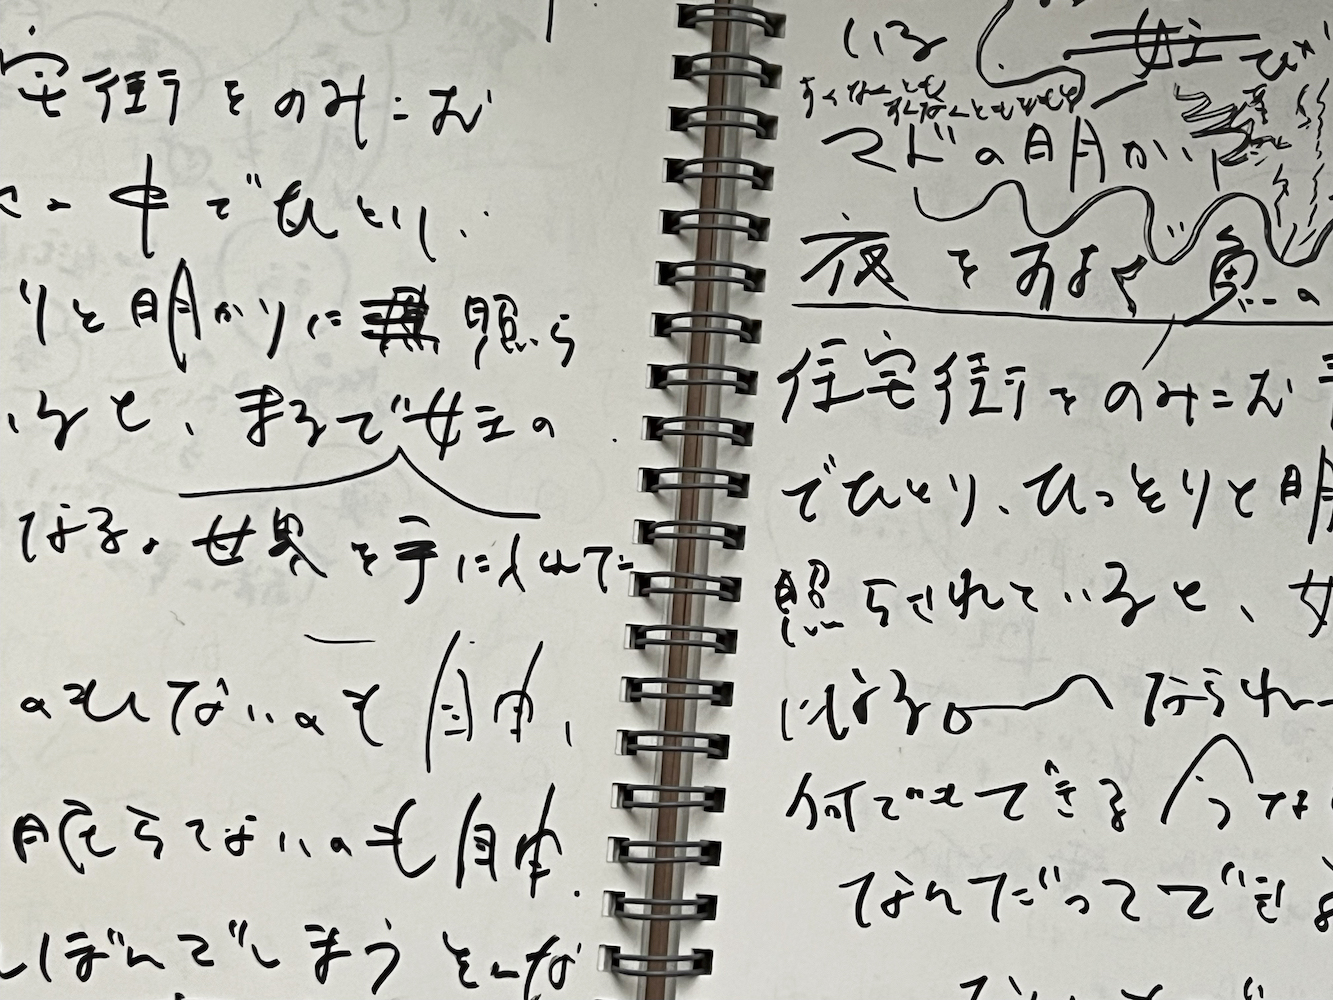 宅街をのみこむ
中でひとり.
りと明かりに照ら
いると、まるで女王の
なる。世界を手に入れた
のまないのも自由、
眠らないのも自由.
しぼんでしまう
いる
女王
すくなくとも
すくなくとも
マドの明かり
夜をおよぐ魚の
住宅街をのみこむ
でひとり、ひっそりと明
照らされていると、女
になる。なられ
何でもできる
なんだってできる